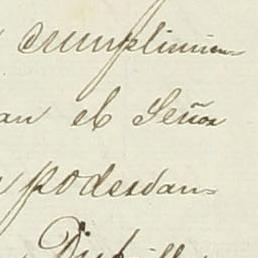 cumplimien=
an el Señor
poderdan=